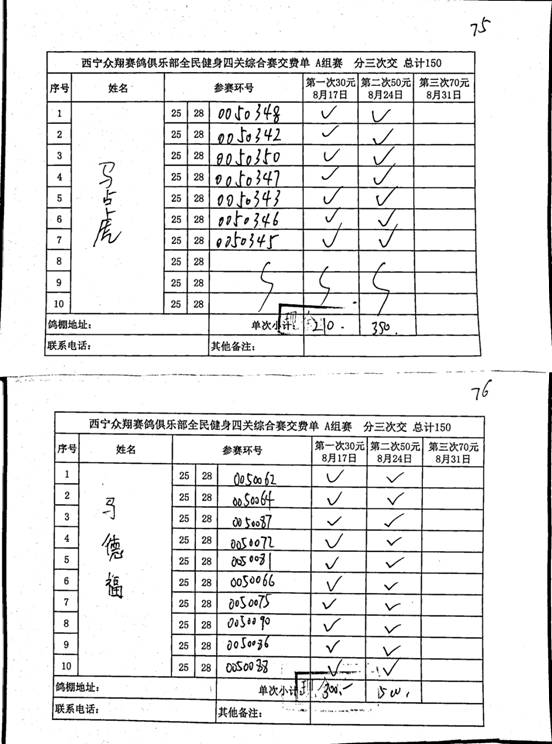 75
西宁众翔赛鸽俱乐部全民健身四关综合赛交费单 A组赛 分三次交 总计150
序号 姓名 参赛环号 第一次30元 8月17日 第二次50元 8月24日 第三次70元 8月31日
马占虎
1 25 28 0050348 ✓ ✓
2 25 28 0050342 ✓ ✓
3 25 28 0050350 ✓ ✓
4 25 28 0050347 ✓ ✓
5 25 28 0050343 ✓ ✓
6 25 28 0050346 ✓ ✓
7 25 28 0050345 ✓ ✓
8 25 28
9 25 28
10 25 28
鸽棚地址: 单次小计: 210. 350.
联系电话: 其他备注:
76
西宁众翔赛鸽俱乐部全民健身四关综合赛交费单 A组赛 分三次交 总计150
序号 姓名 参赛环号 第一次30元 8月17日 第二次50元 8月24日 第三次70元 8月31日
马德福
1 25 28 0050062 ✓ ✓
2 25 28 0050064 ✓ ✓
3 25 28 0050087 ✓ ✓
4 25 28 0050072 ✓ ✓
5 25 28 0050081 ✓ ✓
6 25 28 0050066 ✓ ✓
7 25 28 0050075 ✓ ✓
8 25 28 0050090 ✓ ✓
9 25 28 0050086 ✓ ✓
10 25 28 0050088 ✓ ✓
鸽棚地址: 单次小计 300.- 500.
联系电话: 其他备注: